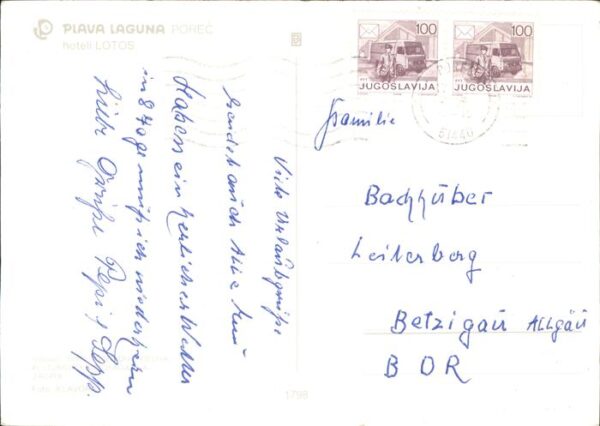 PLAVA LAGUNA POREČ
hoteli LOTOS
100
JUGOSLAVIJA
100
JUGOSLAVIJA
51440
Viele Urlaubsgrüße
sendet euch
Haben ein herrliches Wetter
in 8 Tage muß ich wieder
Liebe Grüße Pepi & Sepp.
Familie
Bachhuber
Leiterberg
Betzigau ALLGÄU
BDR
ZAGREB
1798